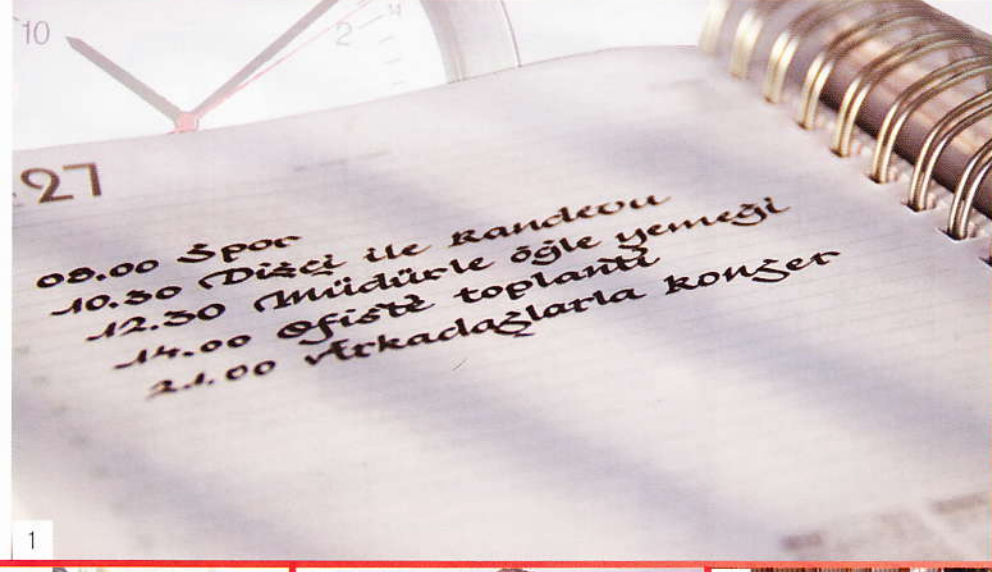 10
2
27
08.00 Spor
10.30 Dişçi ile Randevu
12.30 Müdürle öğle yemeği
14.00 Ofiste toplantı
21.00 Arkadaşlarla konser
1